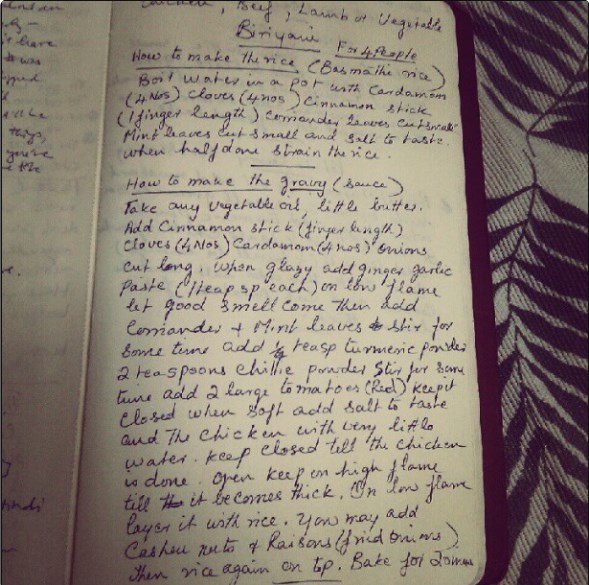 Chicken, Beef, Lamb or Vegetable
Biriyani For 4 People
How to make the rice (Basmathi rice)
Boil water in a pot with Cardamom
(4 Nos) Cloves (4 nos) Cinnamon stick
(1 finger length) Coriander leaves cut small
Mint leaves cut small and salt to taste.
When half done strain the rice.
How to make the gravy (sauce)
Take any vegetable oil, little butter.
Add Cinnamon stick (finger length)
Cloves (4 Nos) Cardamom (4 nos) onions
cut long. When glazy add ginger garlic
paste (1 teasp each) on low flame
let good smell come then add
Coriander + Mint leaves stir for
some time add teasp turmeric powder
2 teaspoons chillie powder stir for some
time add 2 large tomatoes (Red) keep it
closed when soft add salt to taste
and the chicken with very little
water. keep closed till the chicken
is done. Open keep on high flame
till it becomes thick. On low flame
layer it with rice. You may add
Cashew nuts & Raisons (fried onions)
then rice again on top. Bake for 20 mins
have
was
things,
you're
the